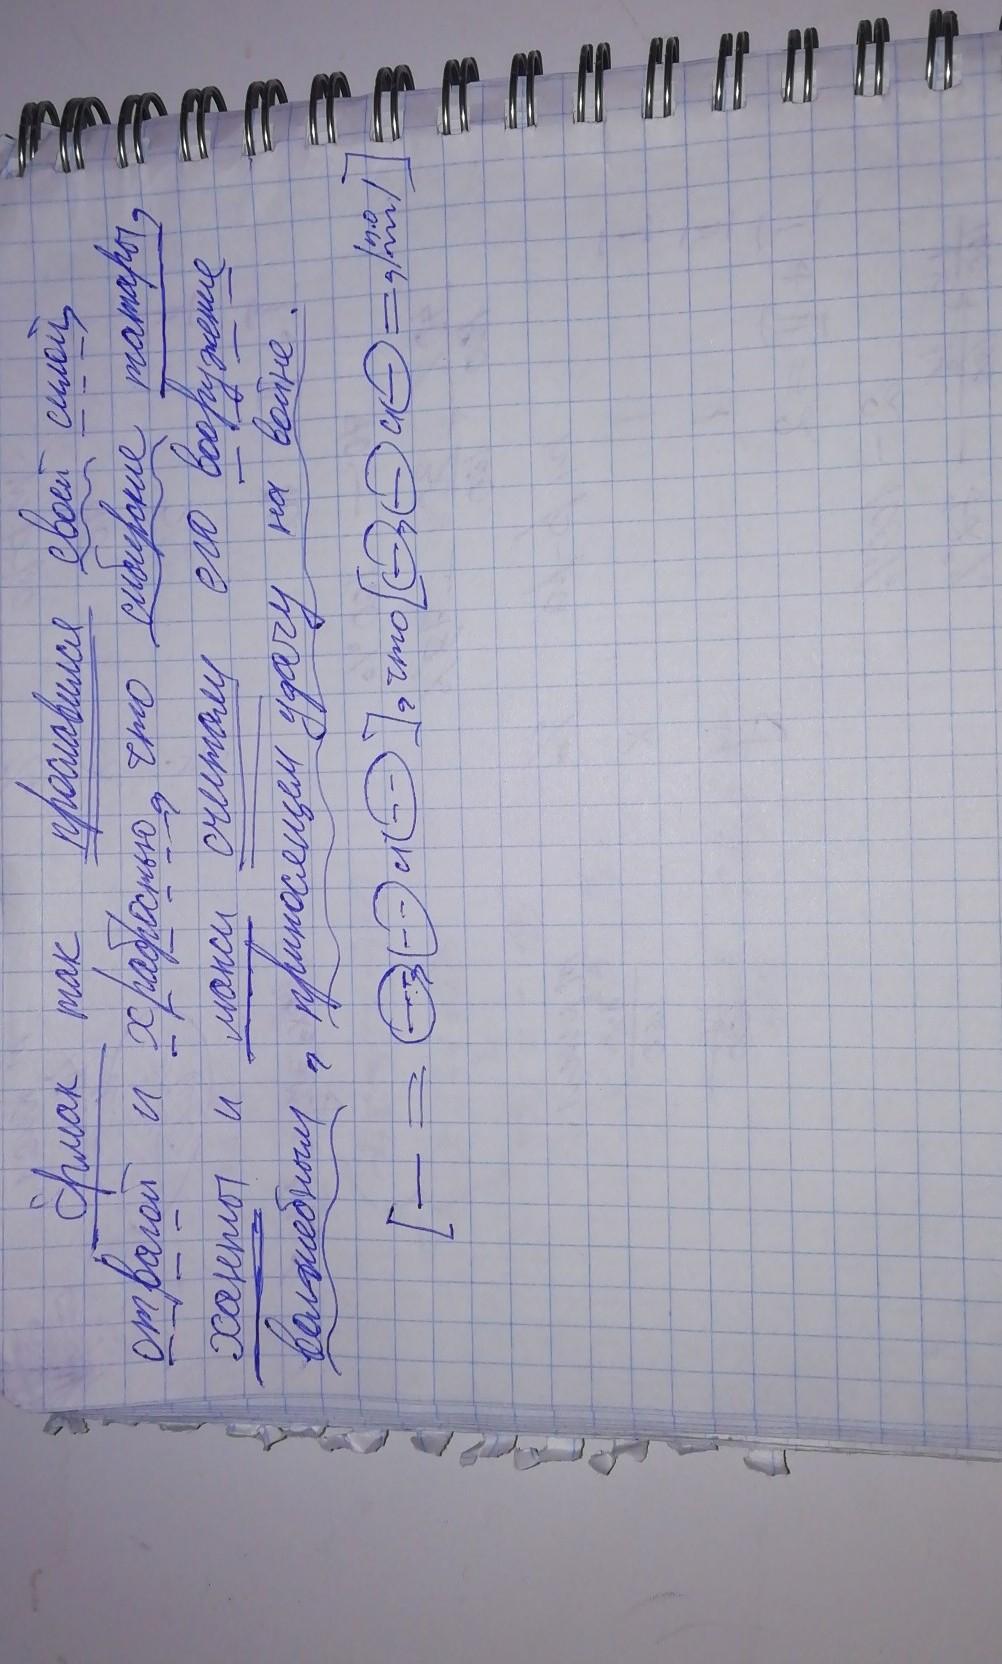 Ермак так прославился своей силой,
отвагой и храбростью, что сибирские татары,
ханты и манси считали его вооружение
волшебным, приносящем удачу на войне.
[— = (–), (–) и (–)], что [(–), (–) и (–) =, |п.о|]